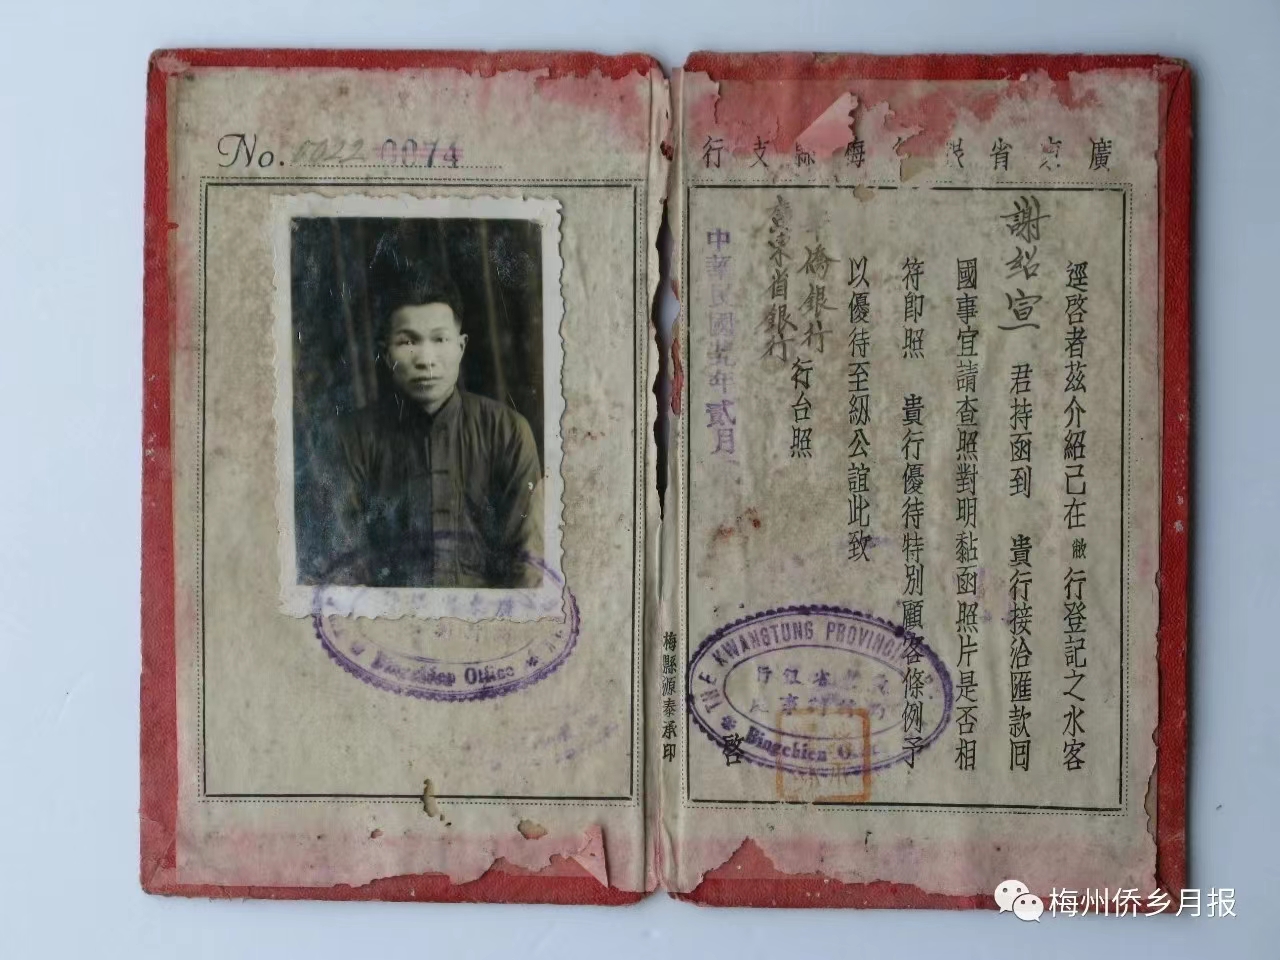 No. 0022 0074
廣東省銀行梅縣支行
逕啓者茲介紹己在敝行登記之水客
謝紹宣 君持函到 貴行接洽匯款回
國事宜請查照對明黏函照片是否相
符即照 貴行優待特別顧客條例予
以優待至紉公誼此致
華僑銀行
廣東省銀行
行台照
中華民國 年貳月
啓
THE KWANGTUNG PROVINCIAL
Bingchien Office
梅縣源泰承印
梅州侨乡月报